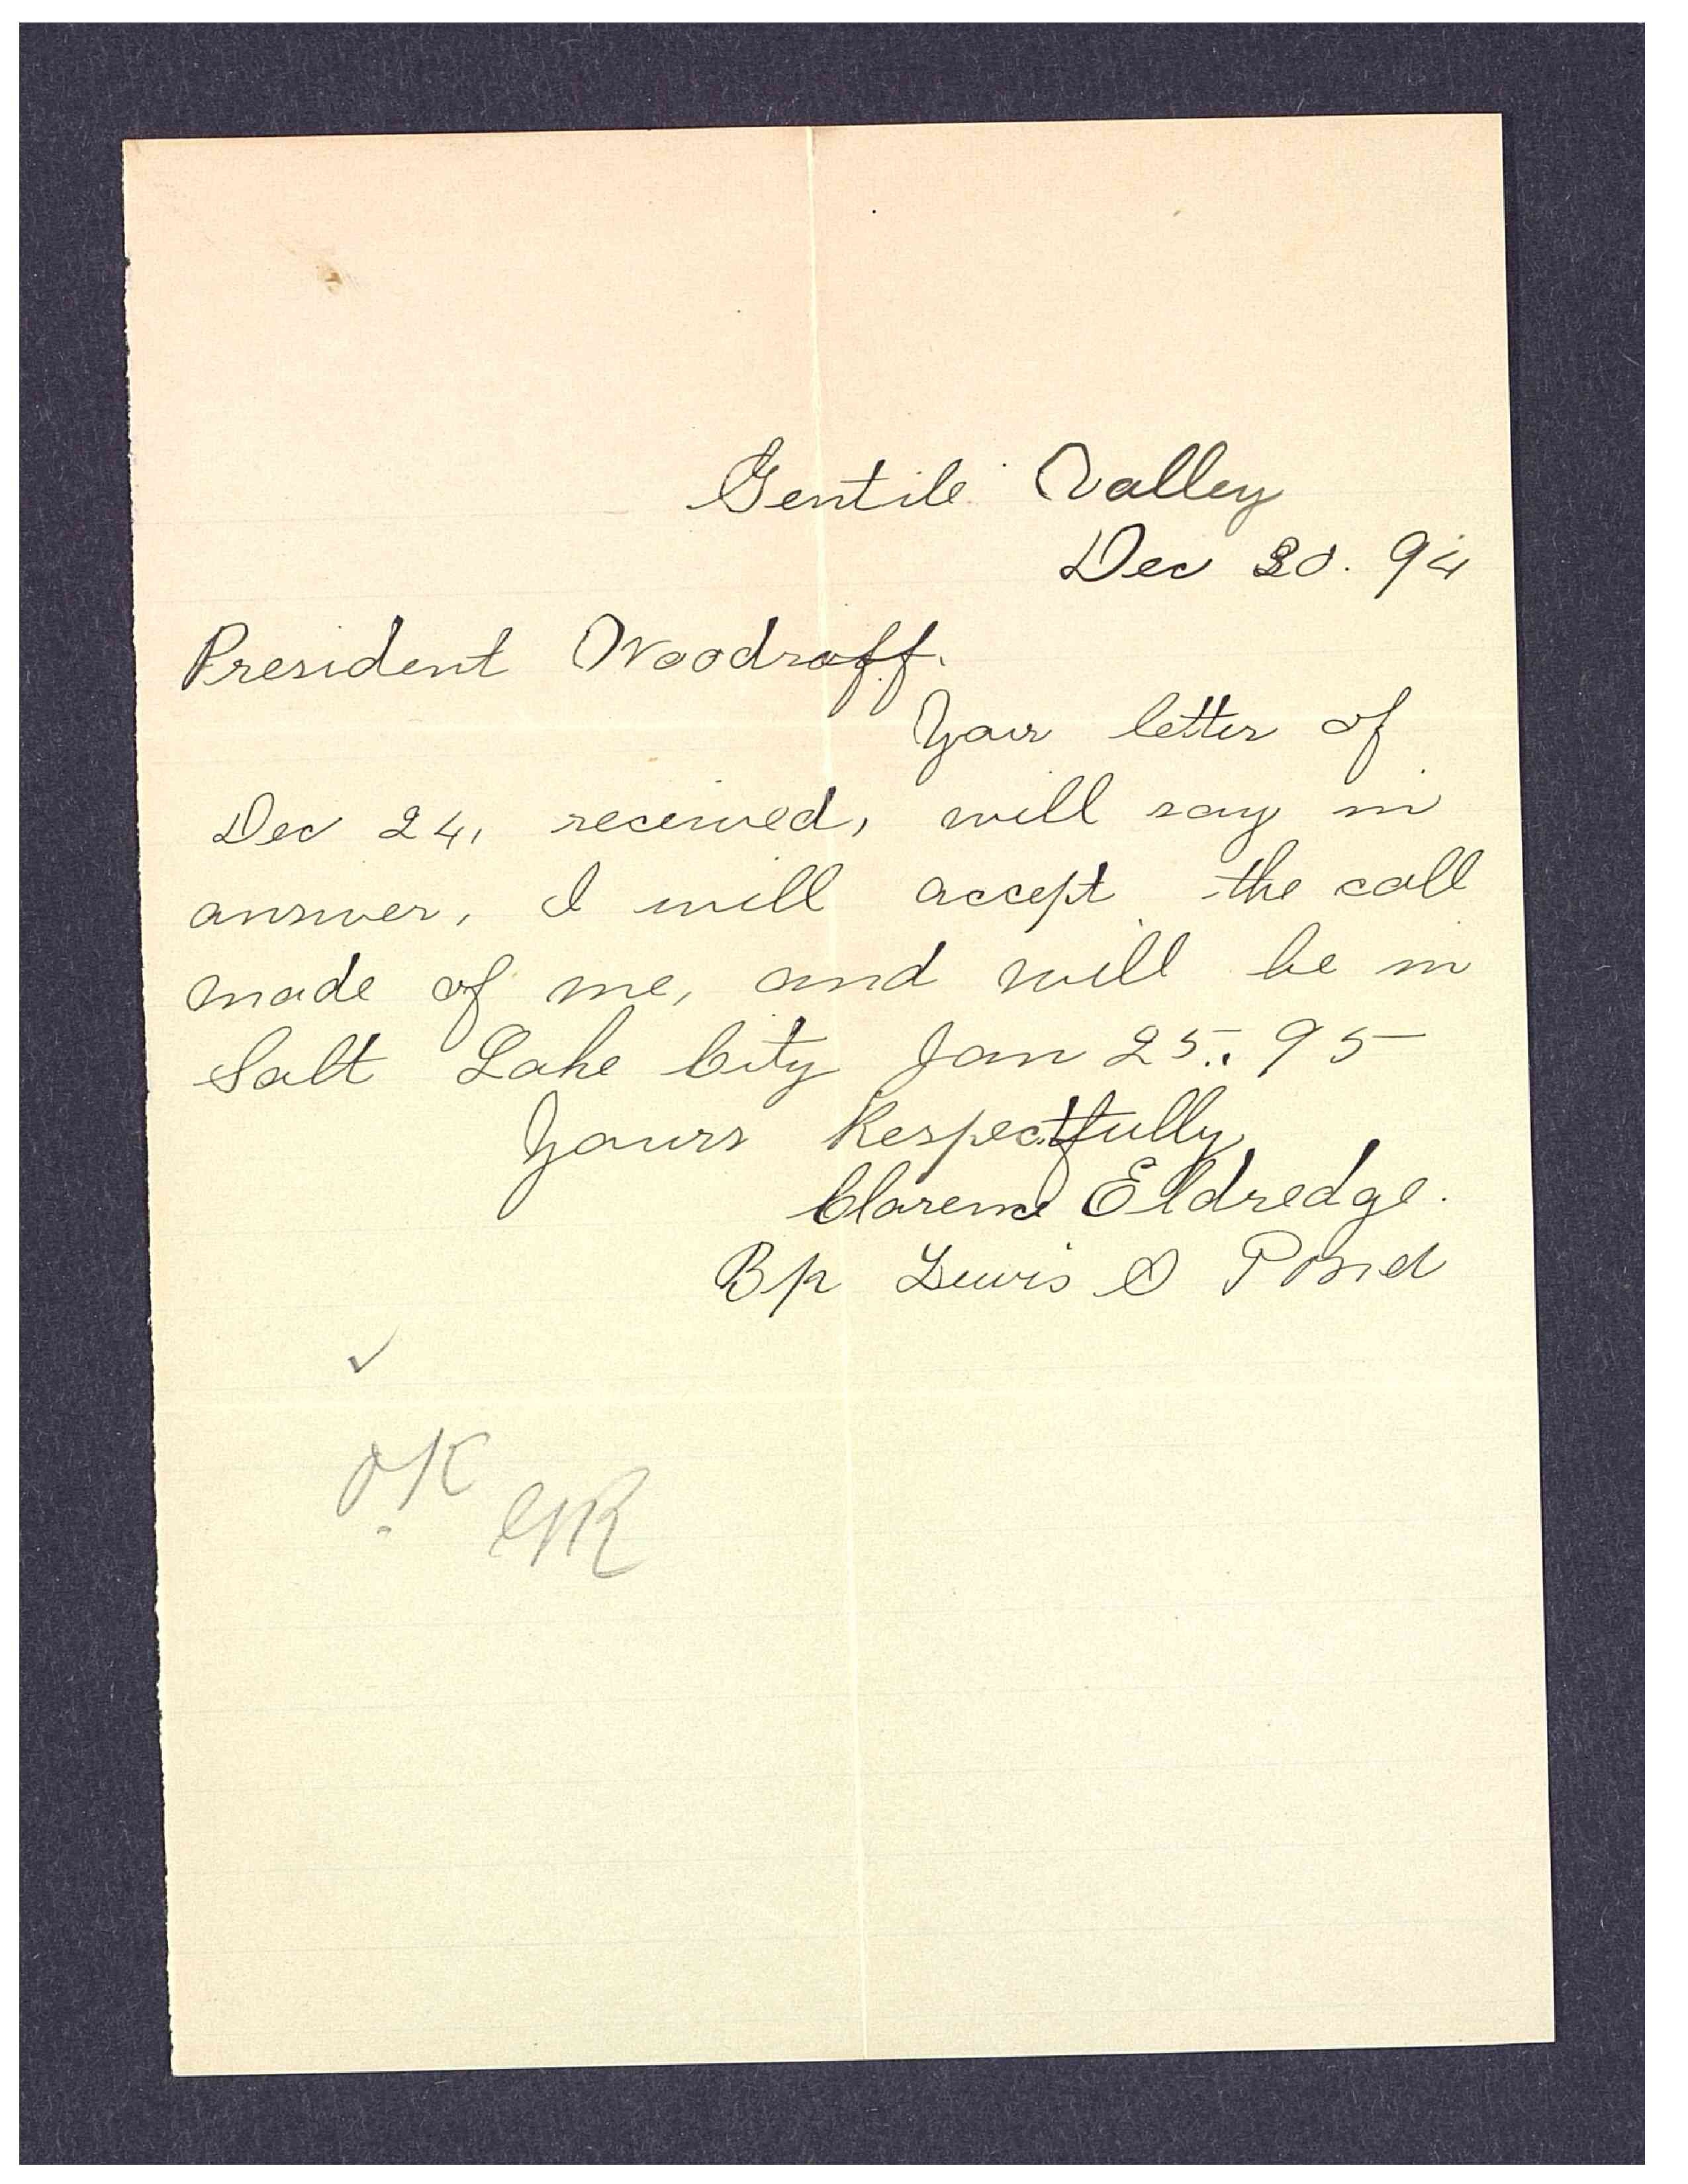 Gentile Valley
Dec 30. 94
President Woodruff.
Your letter of
Dec 24, received, will say in
answer, I will accept the call
made of me, and will be in
Salt Lake City Jan 25. 95
Yours Respectfully
Clarence Eldredge.
Bp Lewis S Pond
✓
OK
GR